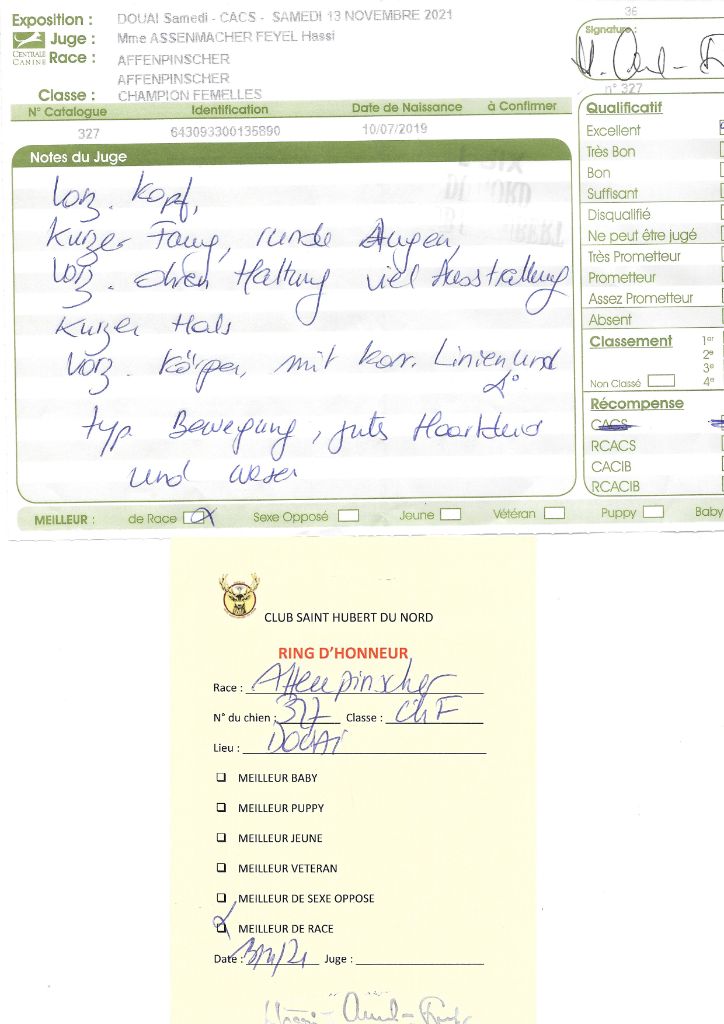 Exposition : DOUAI Samedi - CACS - SAMEDI 13 NOVEMBRE 2021
Juge : Mme ASSENMACHER FEYEL Hassi
CENTRALE CANINE
Race : AFFENPINSCHER
AFFENPINSCHER
Classe : CHAMPION FEMELLES
N° Catalogue Identification Date de Naissance à Confirmer
327 643093300135890 10/07/2019
Notes du Juge
Vorz. Kopf,
Kurzer Fang, runde Augen,
Vorz. Ohren Haltung viel Ausstrallung
Kurzer Hals
Vorz. Körper, mit korr. Linien und
typ Bewegung, gutes Haarkleid
und wesen
MEILLEUR : de Race Sexe Opposé Jeune Vétéran Puppy Baby
36
Signature :
n° 327
Qualificatif
Excellent
Très Bon
Bon
Suffisant
Disqualifié
Ne peut être jugé
Très Prometteur
Prometteur
Assez Prometteur
Absent
Classement 1er
2e
3e
Non Classé 4e
Récompense
CACS
RCACS
CACIB
RCACIB
CLUB SAINT HUBERT DU NORD
RING D'HONNEUR
Race : Affenpinscher
N° du chien : 327 Classe : CHF
Lieu : DOUAI
MEILLEUR BABY
MEILLEUR PUPPY
MEILLEUR JEUNE
MEILLEUR VETERAN
MEILLEUR DE SEXE OPPOSE
MEILLEUR DE RACE
Date : 13/11/21 Juge :